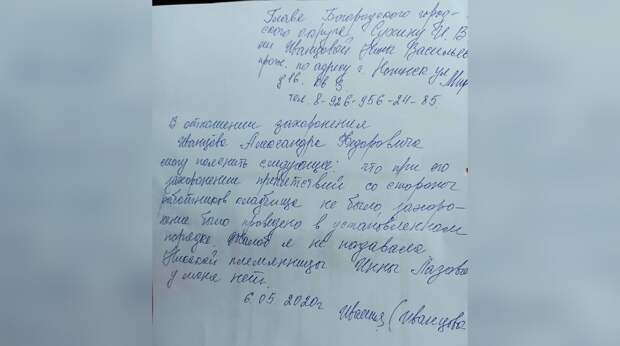 Главе Богородского город-
ского округа Сухину И. В
от Иванцовой Нины Васильев
прож. по адресу г. Ногинск ул Мир
д 16. кв 9.
тел. 8-926-956-24-85.
В отношении захоронения
Иванцова Александра Федоровича
могу пояснить следующее: что при его
захоронении препятствий со стороны
работников кладбища не было, захоро-
нение было проведено в установленном
порядке. Жалоб я не подавала
Никакой племянницы Инны
у меня нет.
6.05 2020г (Иванцова